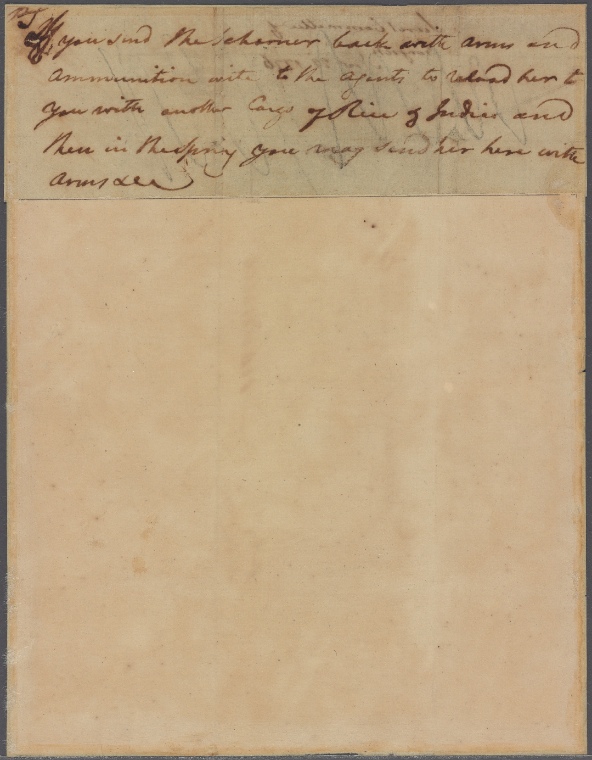 PS
If you send the Schooner back with arms and
ammunition write to the agents to reload her to
you with another Cargo of Rice & Indico and
then in the Spring you may send her here with
arms &c